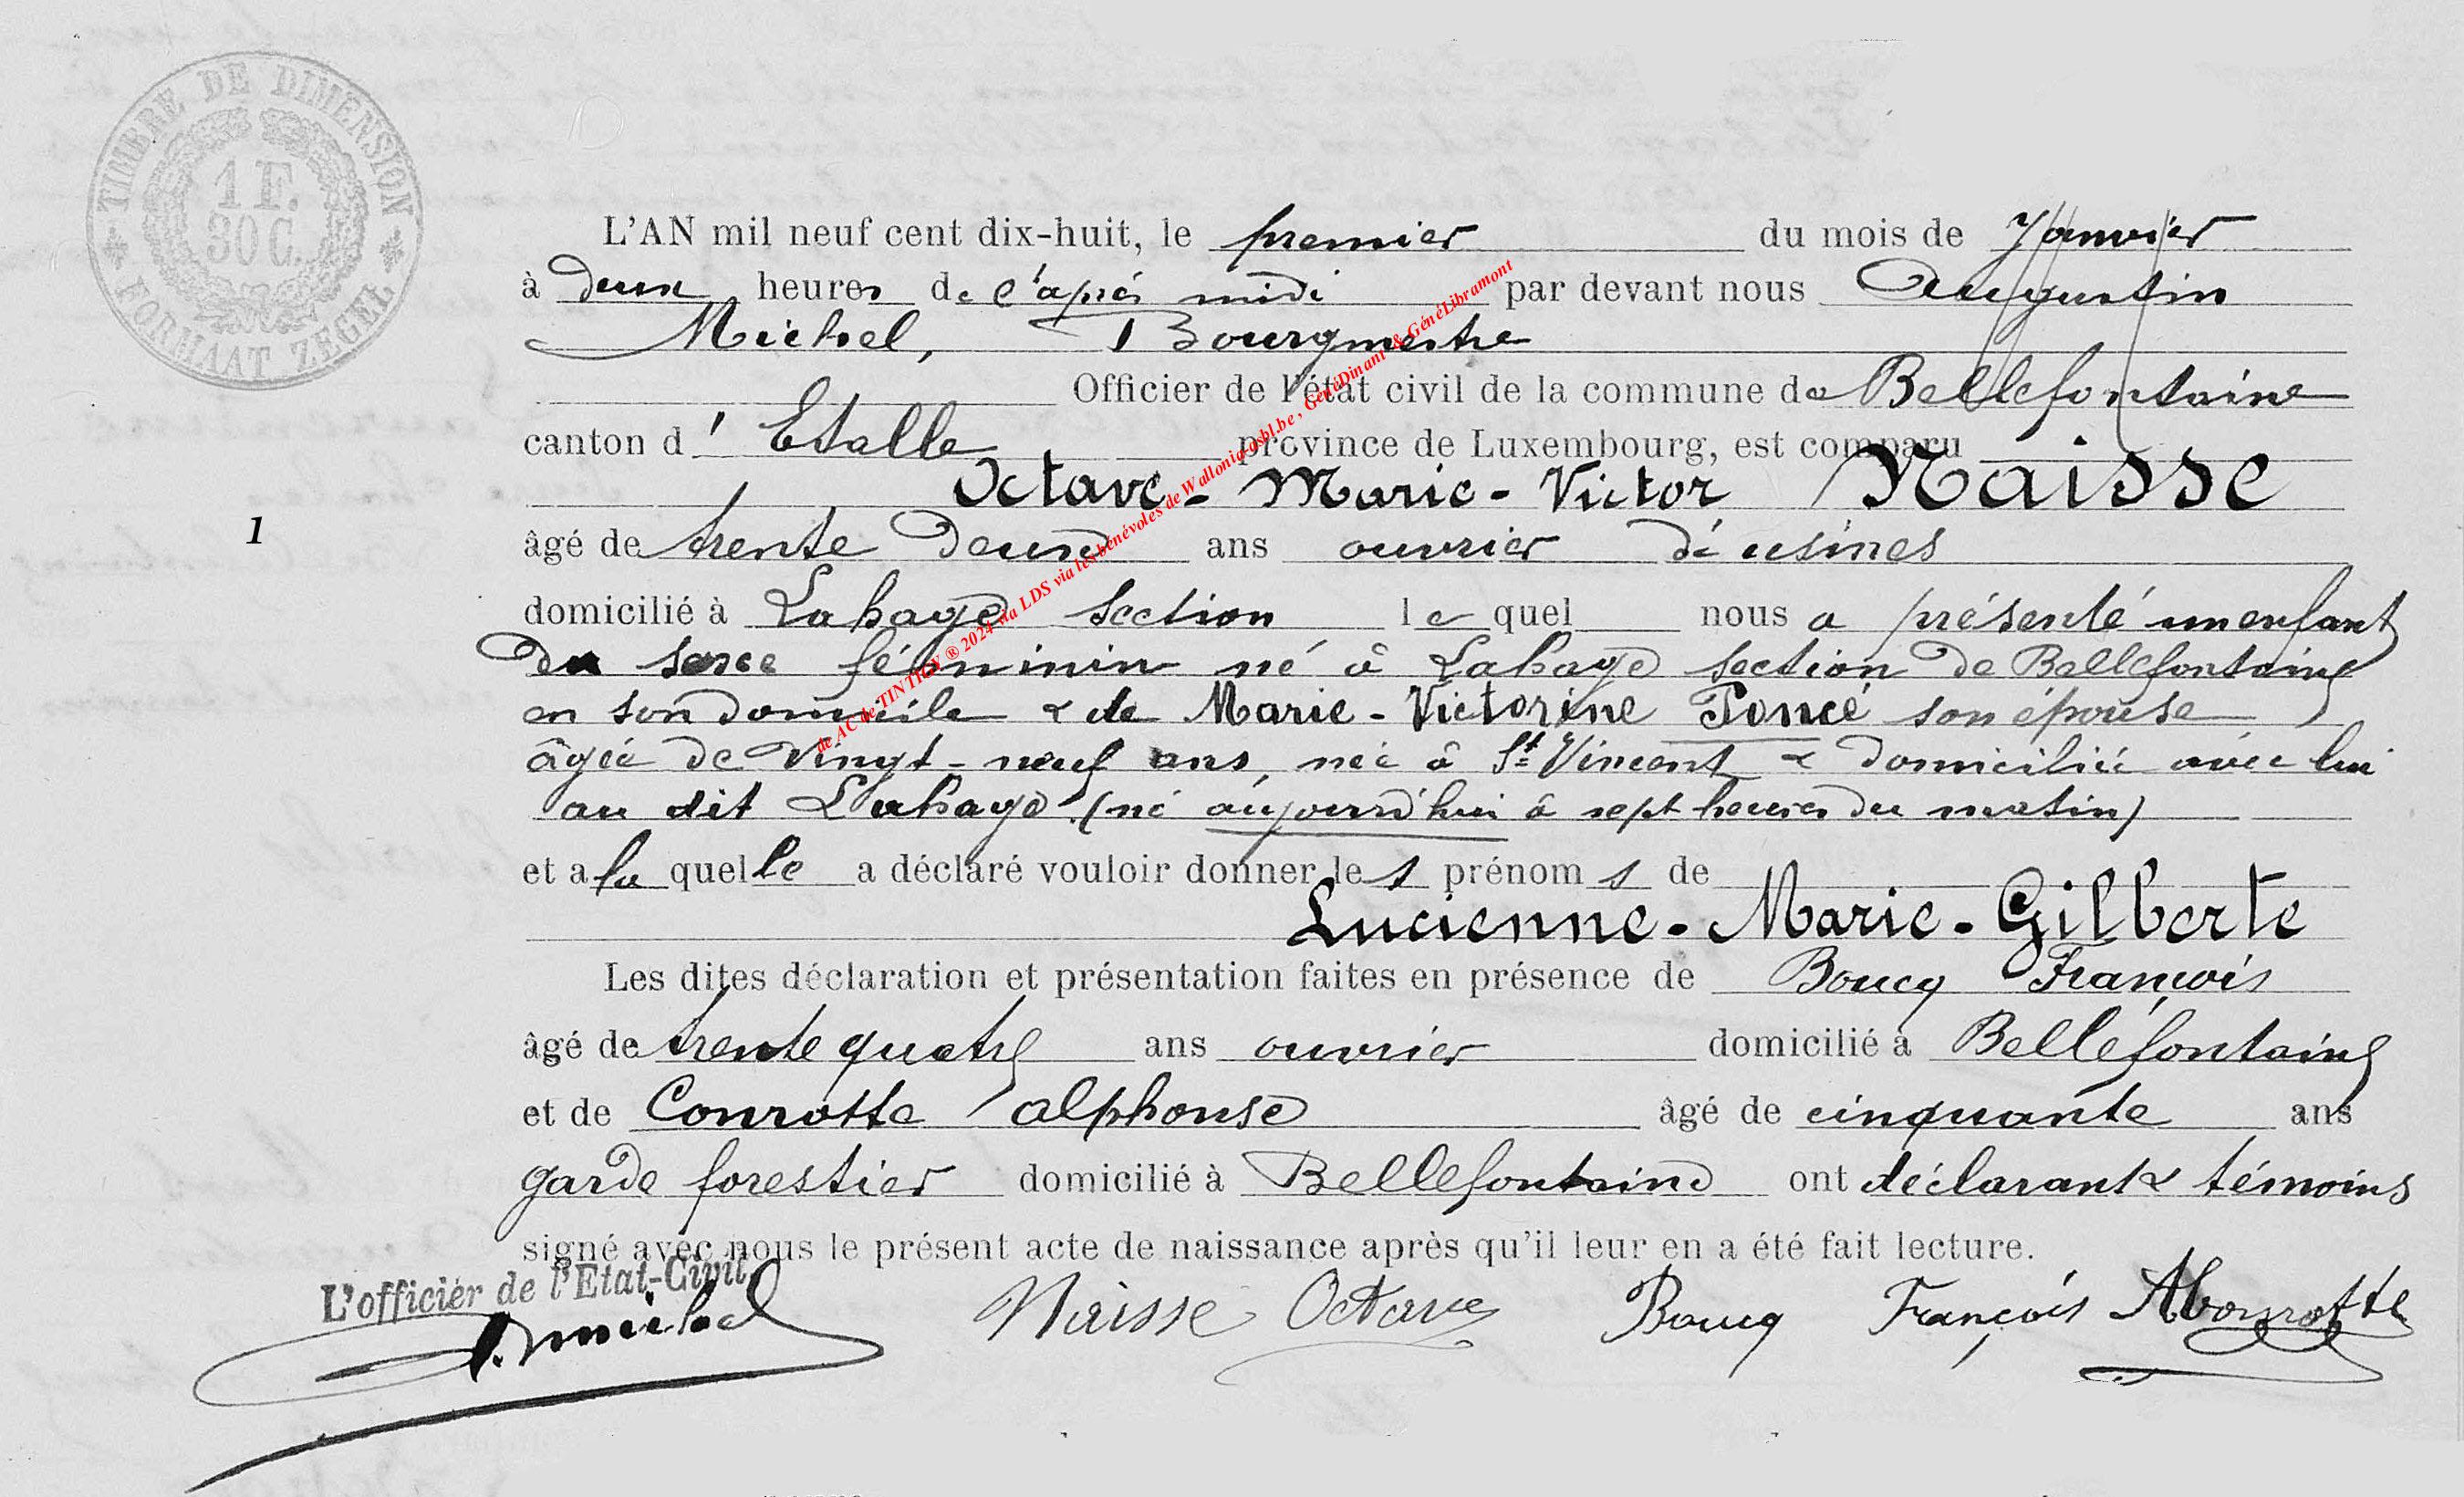 TIMBRE DE DIMENSION
1 F.
30 C.
FORMAAT ZEGEL
L'AN mil neuf cent dix-huit, le premier du mois de Janvier
à deux heures de l'après midi par devant nous Augustin
Michel, Bourgmestre
Officier de l'état civil de la commune de Bellefontaine
canton d' Etalle province de Luxembourg, est comparu
Octave-Marie-Victor Naisse
1
âgé de trente deux ans ouvrier d'usines
domicilié à Lahage section le quel nous a présenté un enfant
du sexe féminin né à Lahage section de Bellefontaine
en son domicile & de Marie-Victorine Poncé son épouse
âgée de vingt-neuf ans, née à St Vincent & domiciliée avec lui
au dit Lahage (né aujourd'hui à sept heures du matin)
et a la quelle a déclaré vouloir donner les prénoms de
Lucienne-Marie-Gilberte
Les dites déclaration et présentation faites en présence de Boucq François
âgé de trente quatre ans ouvrier domicilié à Bellefontaine
et de Conrotte Alphonse âgé de cinquante ans
garde forestier domicilié à Bellefontaine ont déclarant & témoins
signé avec nous le présent acte de naissance après qu'il leur en a été fait lecture.
L'officier de l'Etat-Civil,
A. Michel Naisse Octave Boucq François AConrotte
de AC de TINTIGNY ® 2024 via LDS via les bénévoles de Wallonia-asbl.be, GénéDinant & GénéLibramont